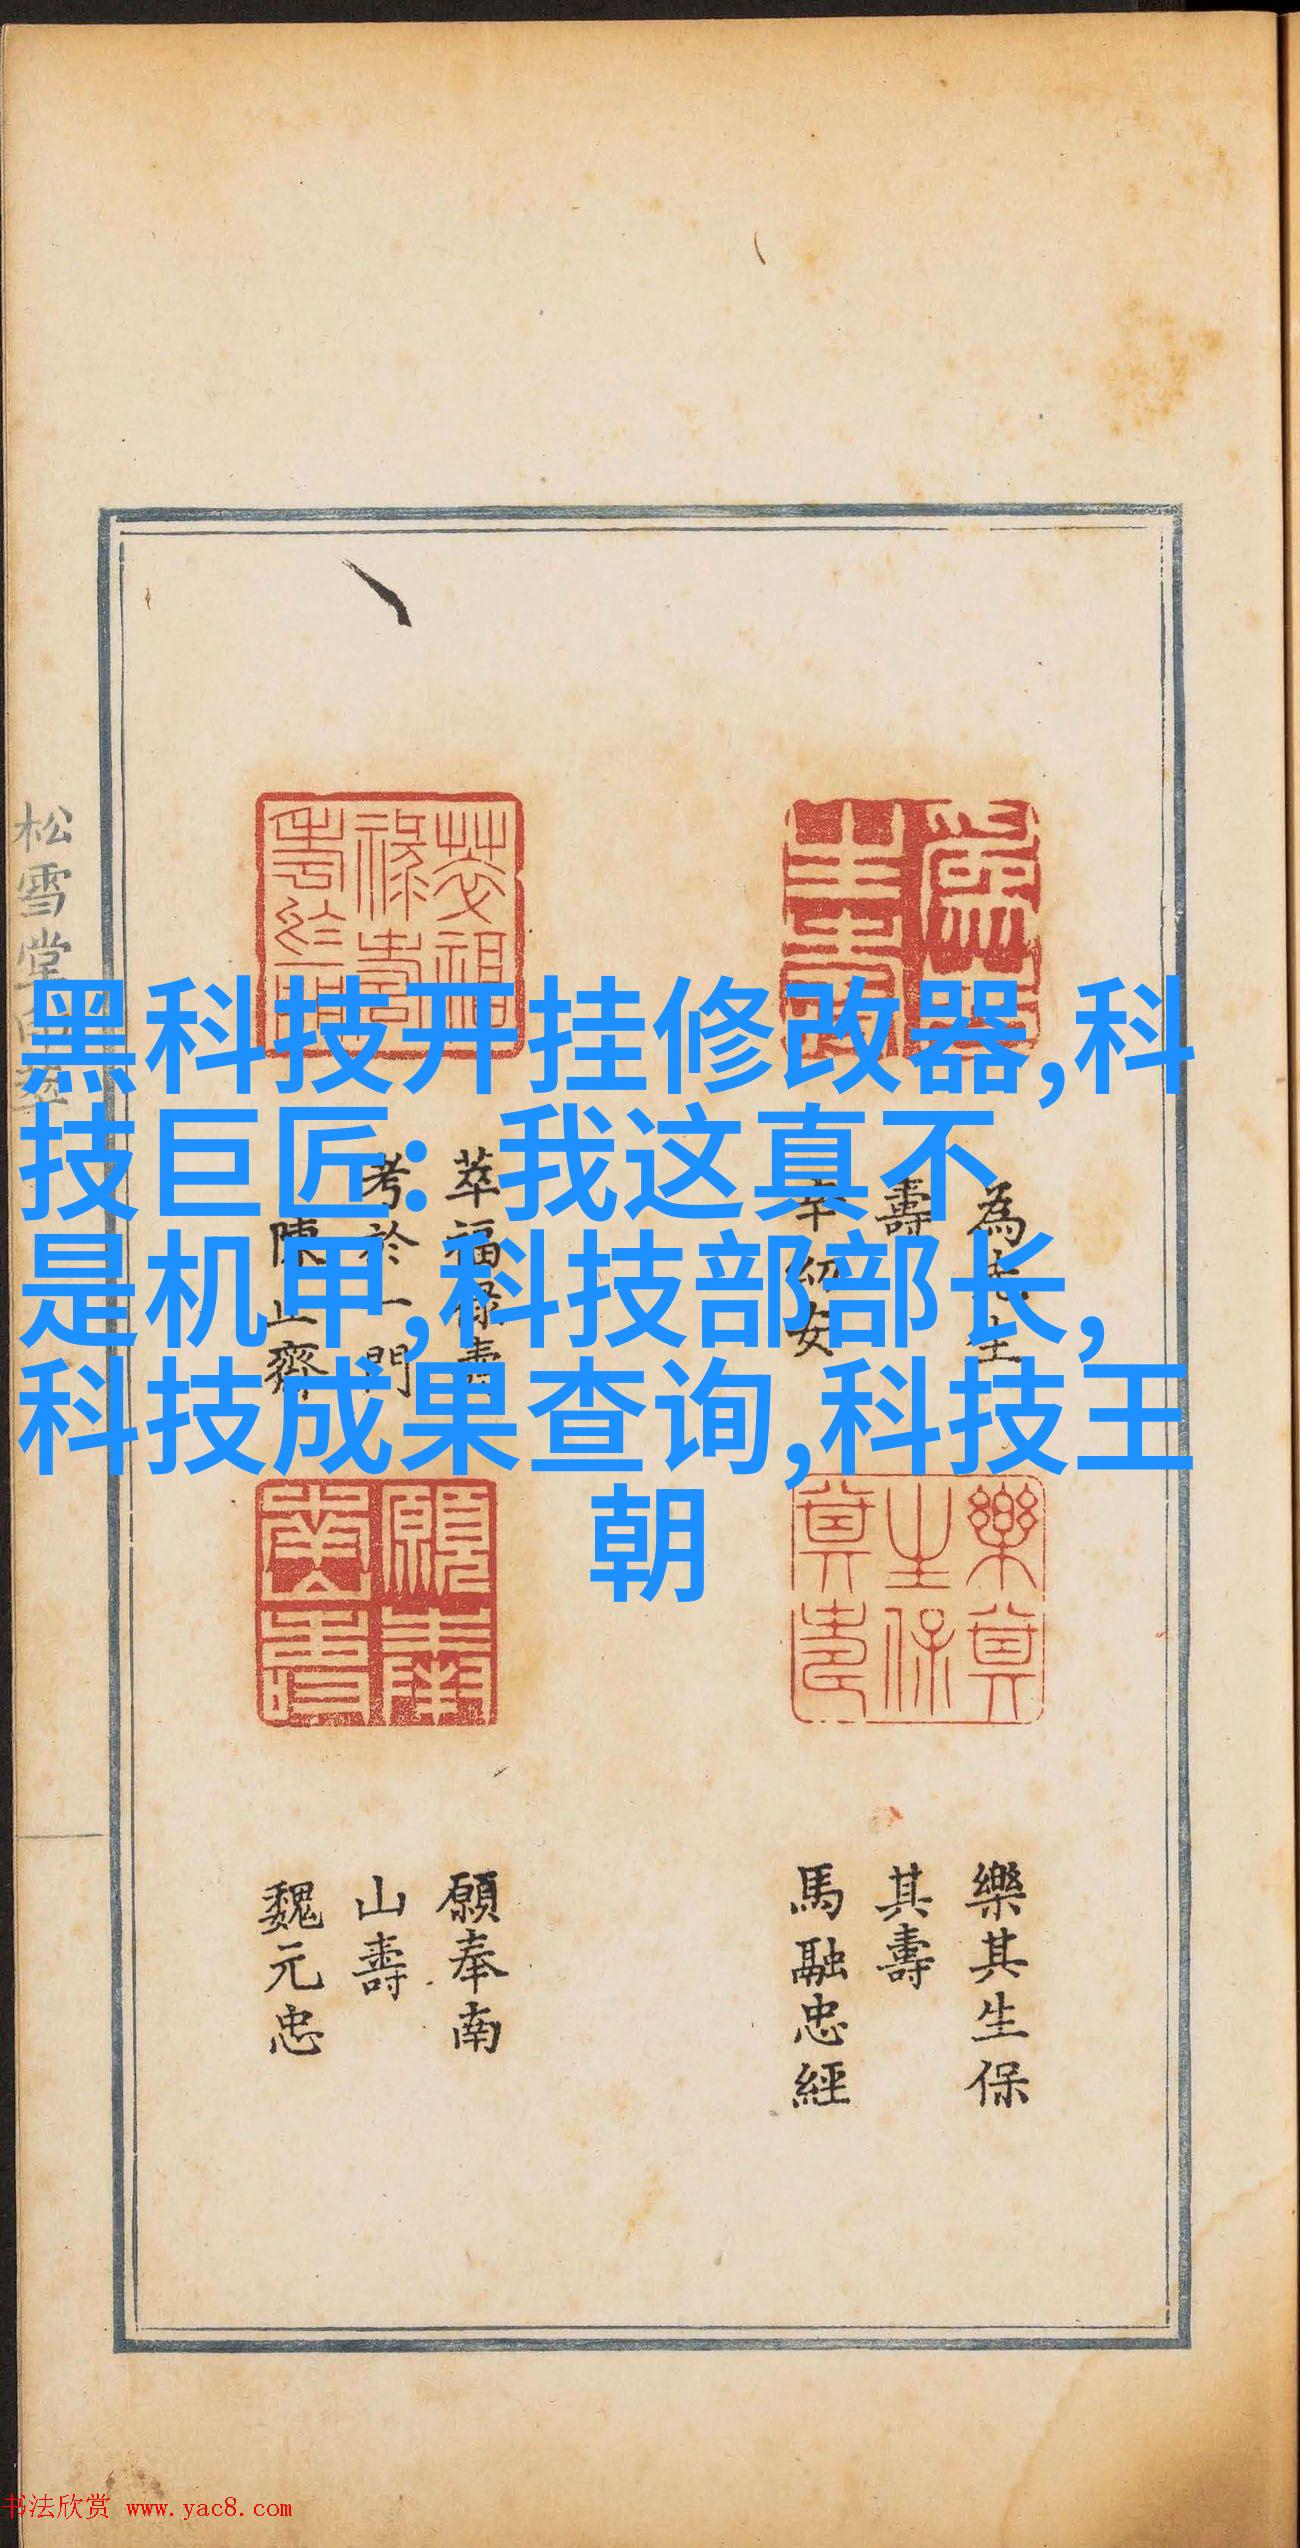 黑科技开挂修改器,科
技巨匠: 我这真不
是机甲,科技部部长,
科技成果查询,科技王
朝
松雪堂
壽
萃福祿壽
考於一門
陳止齋
樂其生保
其壽
馬融忠經
願奉南
山壽
魏元忠
书法欣赏 www.yac8.com